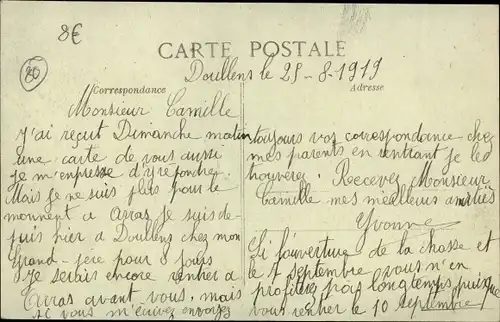 8€
80
CARTE POSTALE
Doullens le 25-8-1919
Correspondance
Adresse
Monsieur Camille
J'ai reçut Dimanche matin
une carte de vous aussi
je m'enpresse d'y reponder
Mais je ne suis plus pour le
monnent a Arras je suis de-
puis hier a Doullens chez mon
Grand-père pour 8 jours
Je serais encore rentrer a
Arras avant vous, mais
si vous m'écrivez envoyez
toujours vos correspondance chez
mes parents en rentrant je les
trouverez. Recevez Monsieur
Camille mes meilleurs amitiés
Yvonne
Si l'ouverture de la chasse et
le 7 septembre vous n'en
profiterez pas longtemps puisque
vous rentrer le 10 septembre